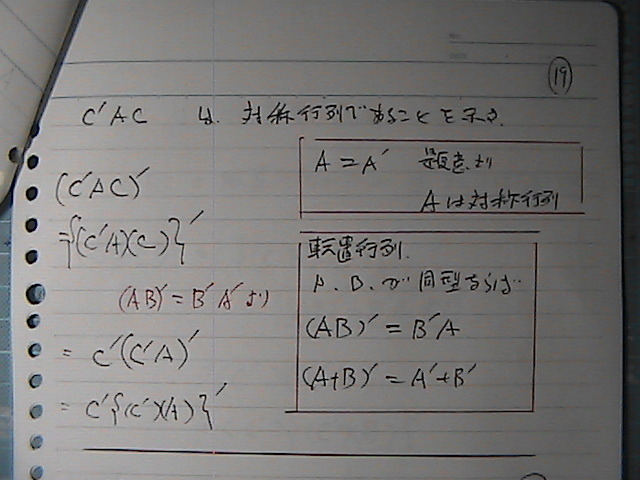 ⑲
C'AC は 対称行列であることを示す.
A = A' 題意より
Aは対称行列
(C'AC)'
={(C'A)(C)}'
(AB)' = B'A'より
= C'(C'A)'
= C'{(C')(A)}'
転置行列.
A. B. が同型ならば
(AB)' = B'A
(A+B)' = A'+B'